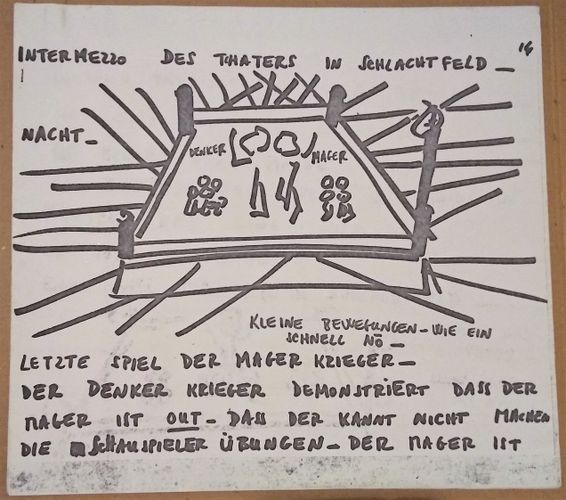 INTERMEZZO DES THATERS IN SCHLACHTFELD_
NACHT_
DENKER MAGER
KLEINE BEWEGUNGEN_ WIE EIN
SCHNELL NŌ_
LETZTE SPIEL DER MAGER KRIEGER_
DER DENKER KRIEGER DEMONSTRIERT DASS DER
MAGER IST OUT_ DASS DER KANNT NICHT MACHEN
DIE SCHAUSPIELER ÜBUNGEN_ DER MAGER IST